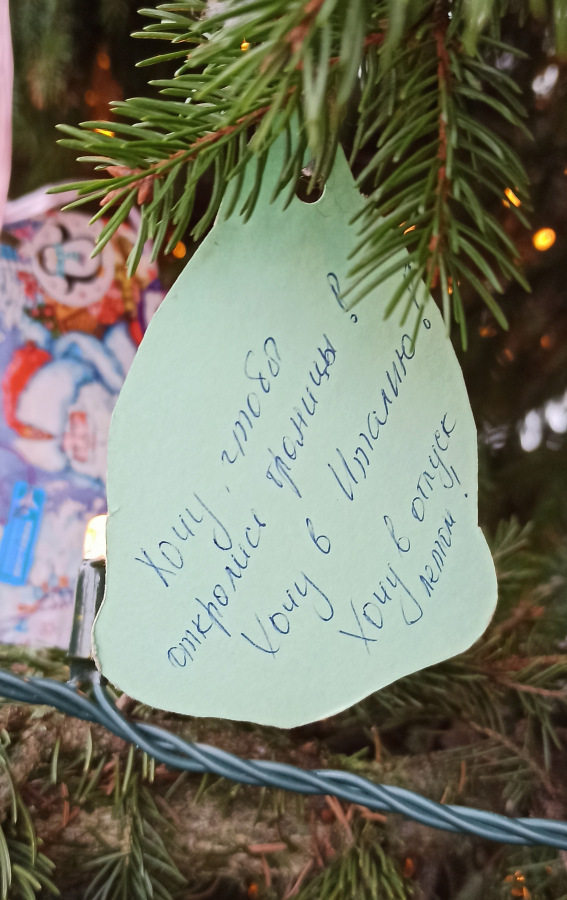 Хочу, чтобы
открылись границы!
Хочу в Италию!
Хочу в отпуск
летом!